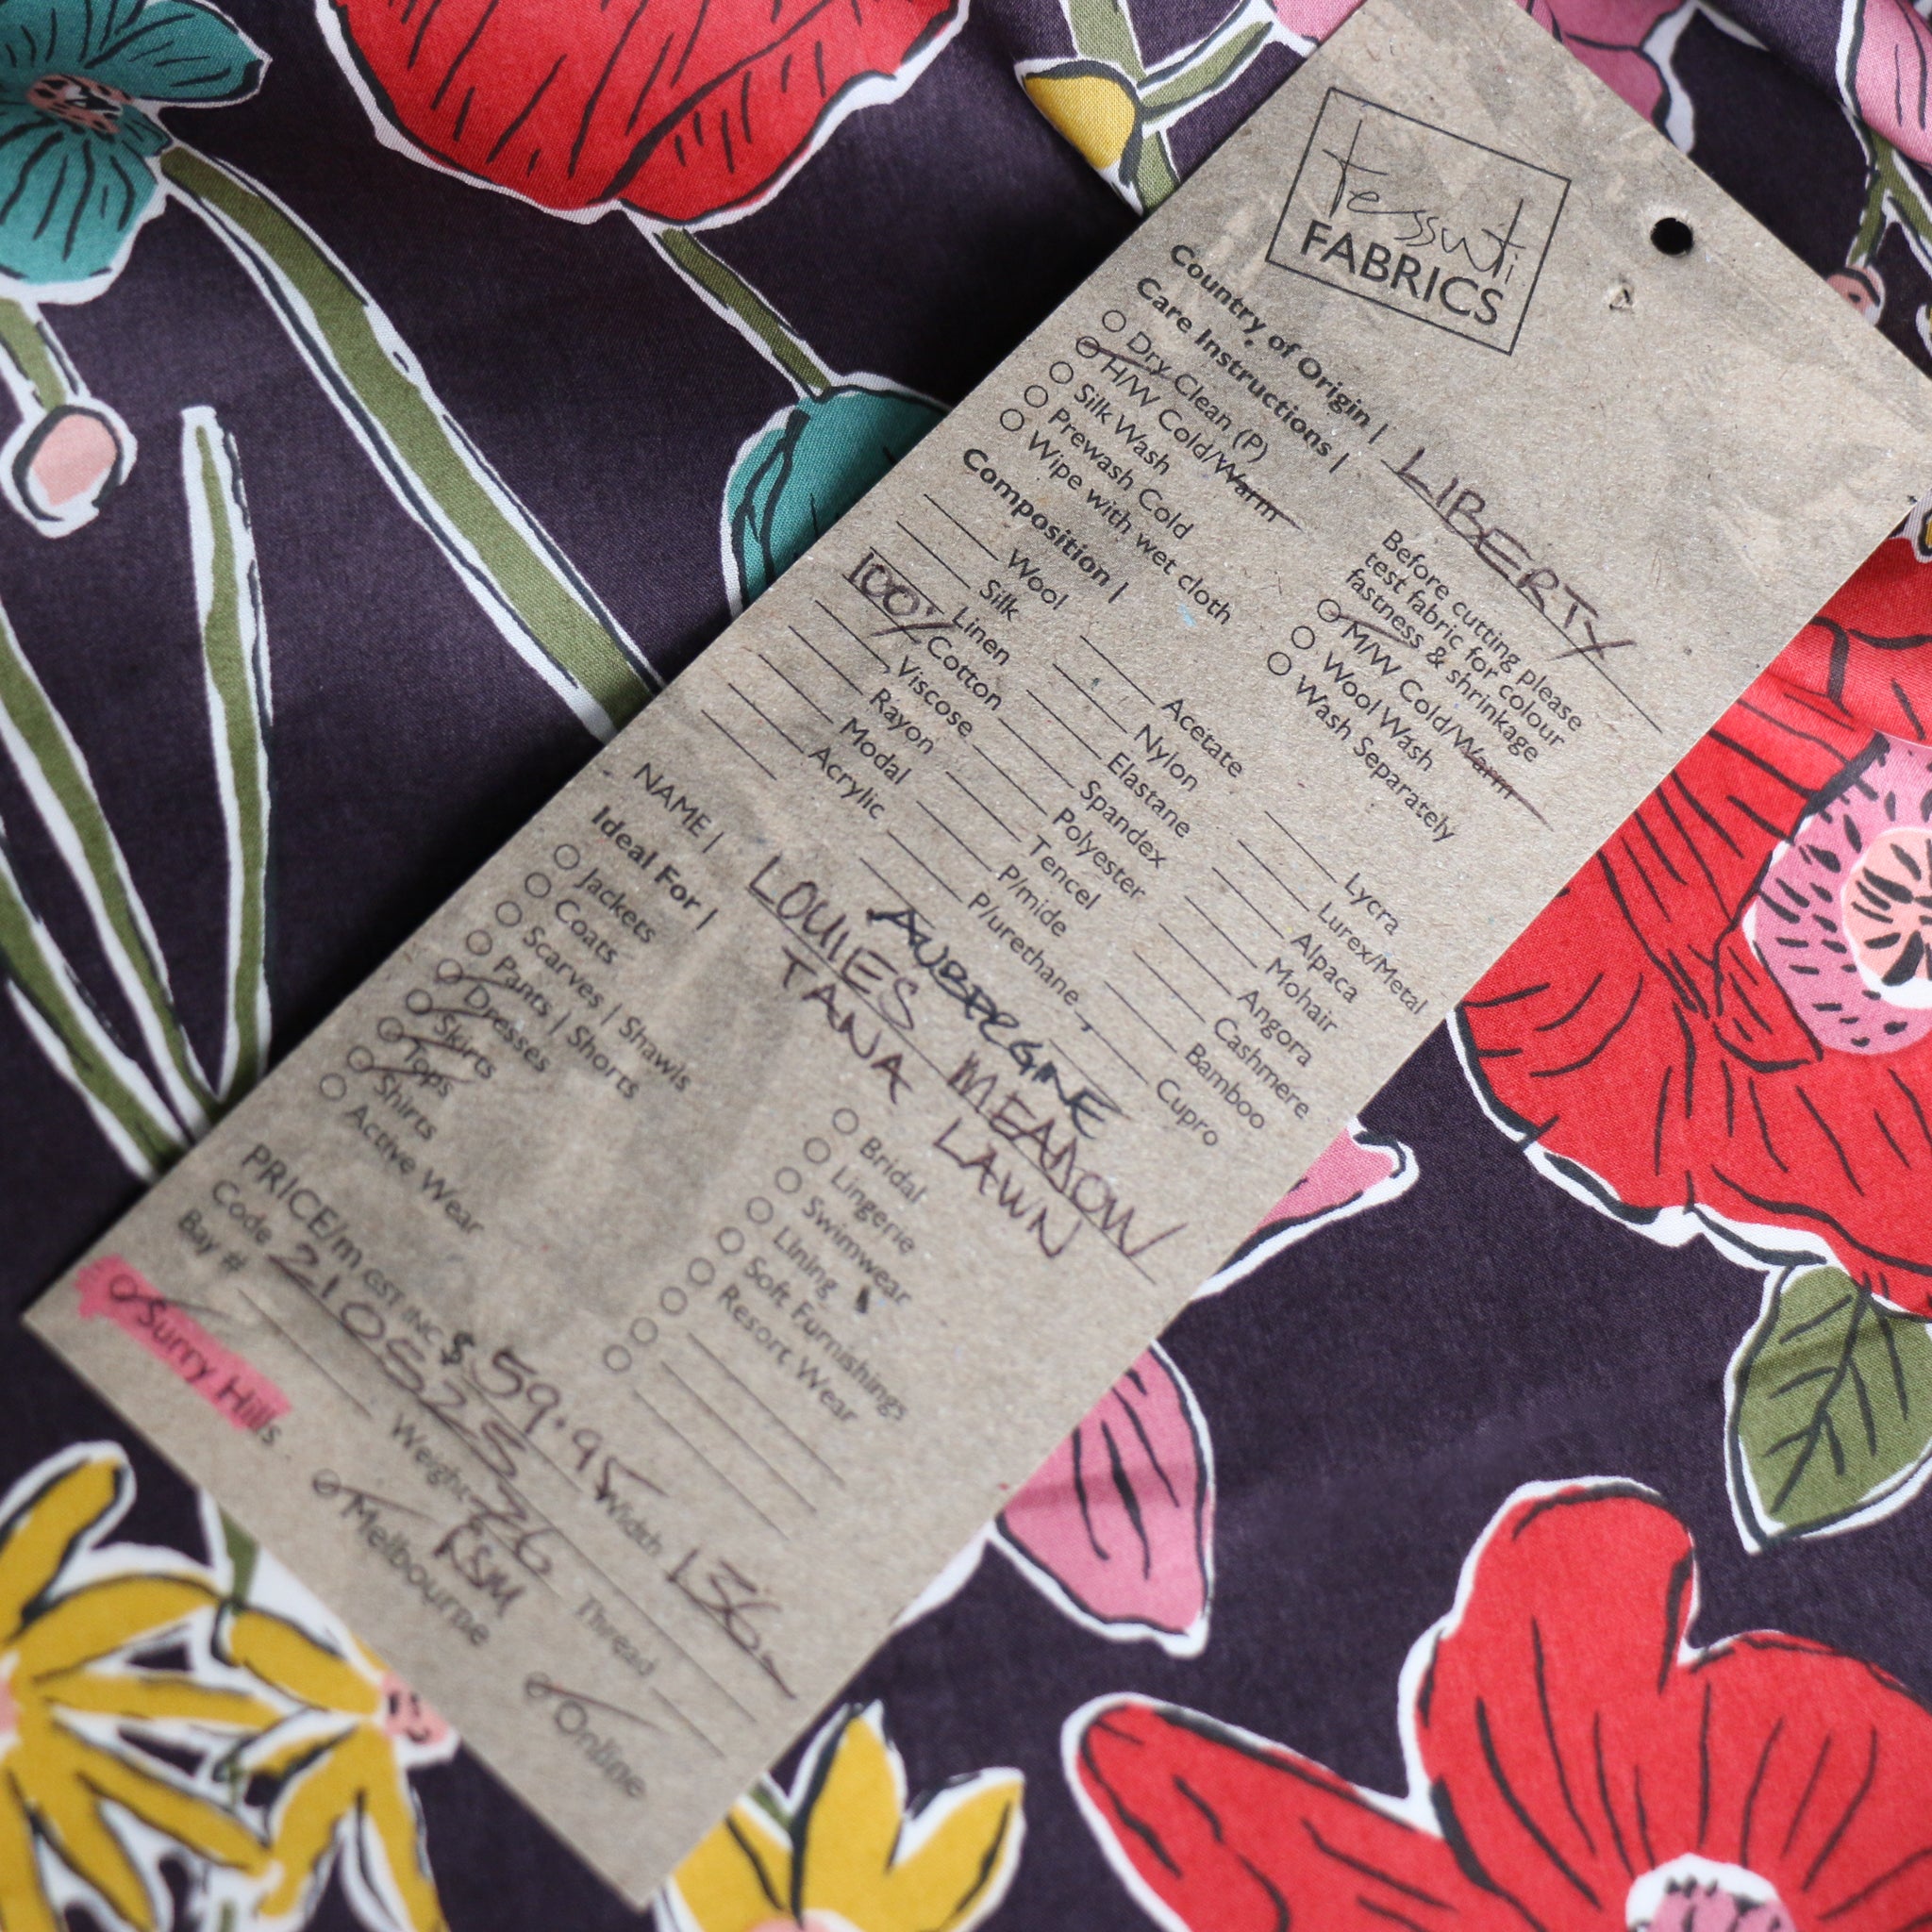 Tessuti
FABRICS
Country of Origin | LIBERTY
Care Instructions |
Dry Clean (P)
H/W Cold/Warm
Silk Wash
Prewash Cold
Wipe with wet cloth
Before cutting please
test fabric for colour
fastness & shrinkage
M/W Cold/Warm
Wool Wash
Wash Separately
Composition |
Wool
Silk
Linen
100% Cotton
Viscose
Rayon
Modal
Acrylic
Acetate
Nylon
Elastane
Spandex
Polyester
Tencel
P/mide
P/urethane
Lycra
Lurex/Metal
Alpaca
Mohair
Angora
Cashmere
Bamboo
Cupro
AUBERGINE
NAME | LOUIES MEADOW
TANA LAWN
Ideal For |
Jackets
Coats
Scarves | Shawls
Pants | Shorts
Dresses
Skirts
Tops
Shirts
Active Wear
Bridal
Lingerie
Swimwear
Lining
Soft Furnishings
Resort Wear
PRICE/m GST INC $ 59.95 Width 136
Code 210525 Weight 76 Thread
Bay # RSM
Surry Hills Melbourne Online